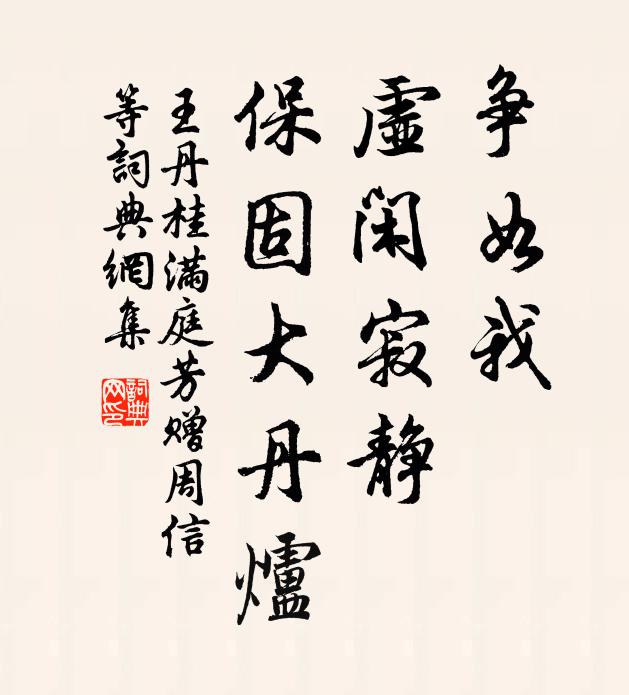 争如我
虛閑寂靜
保固大丹爐
王丹桂满庭芳赠周信
等詞典網集
詞典網印